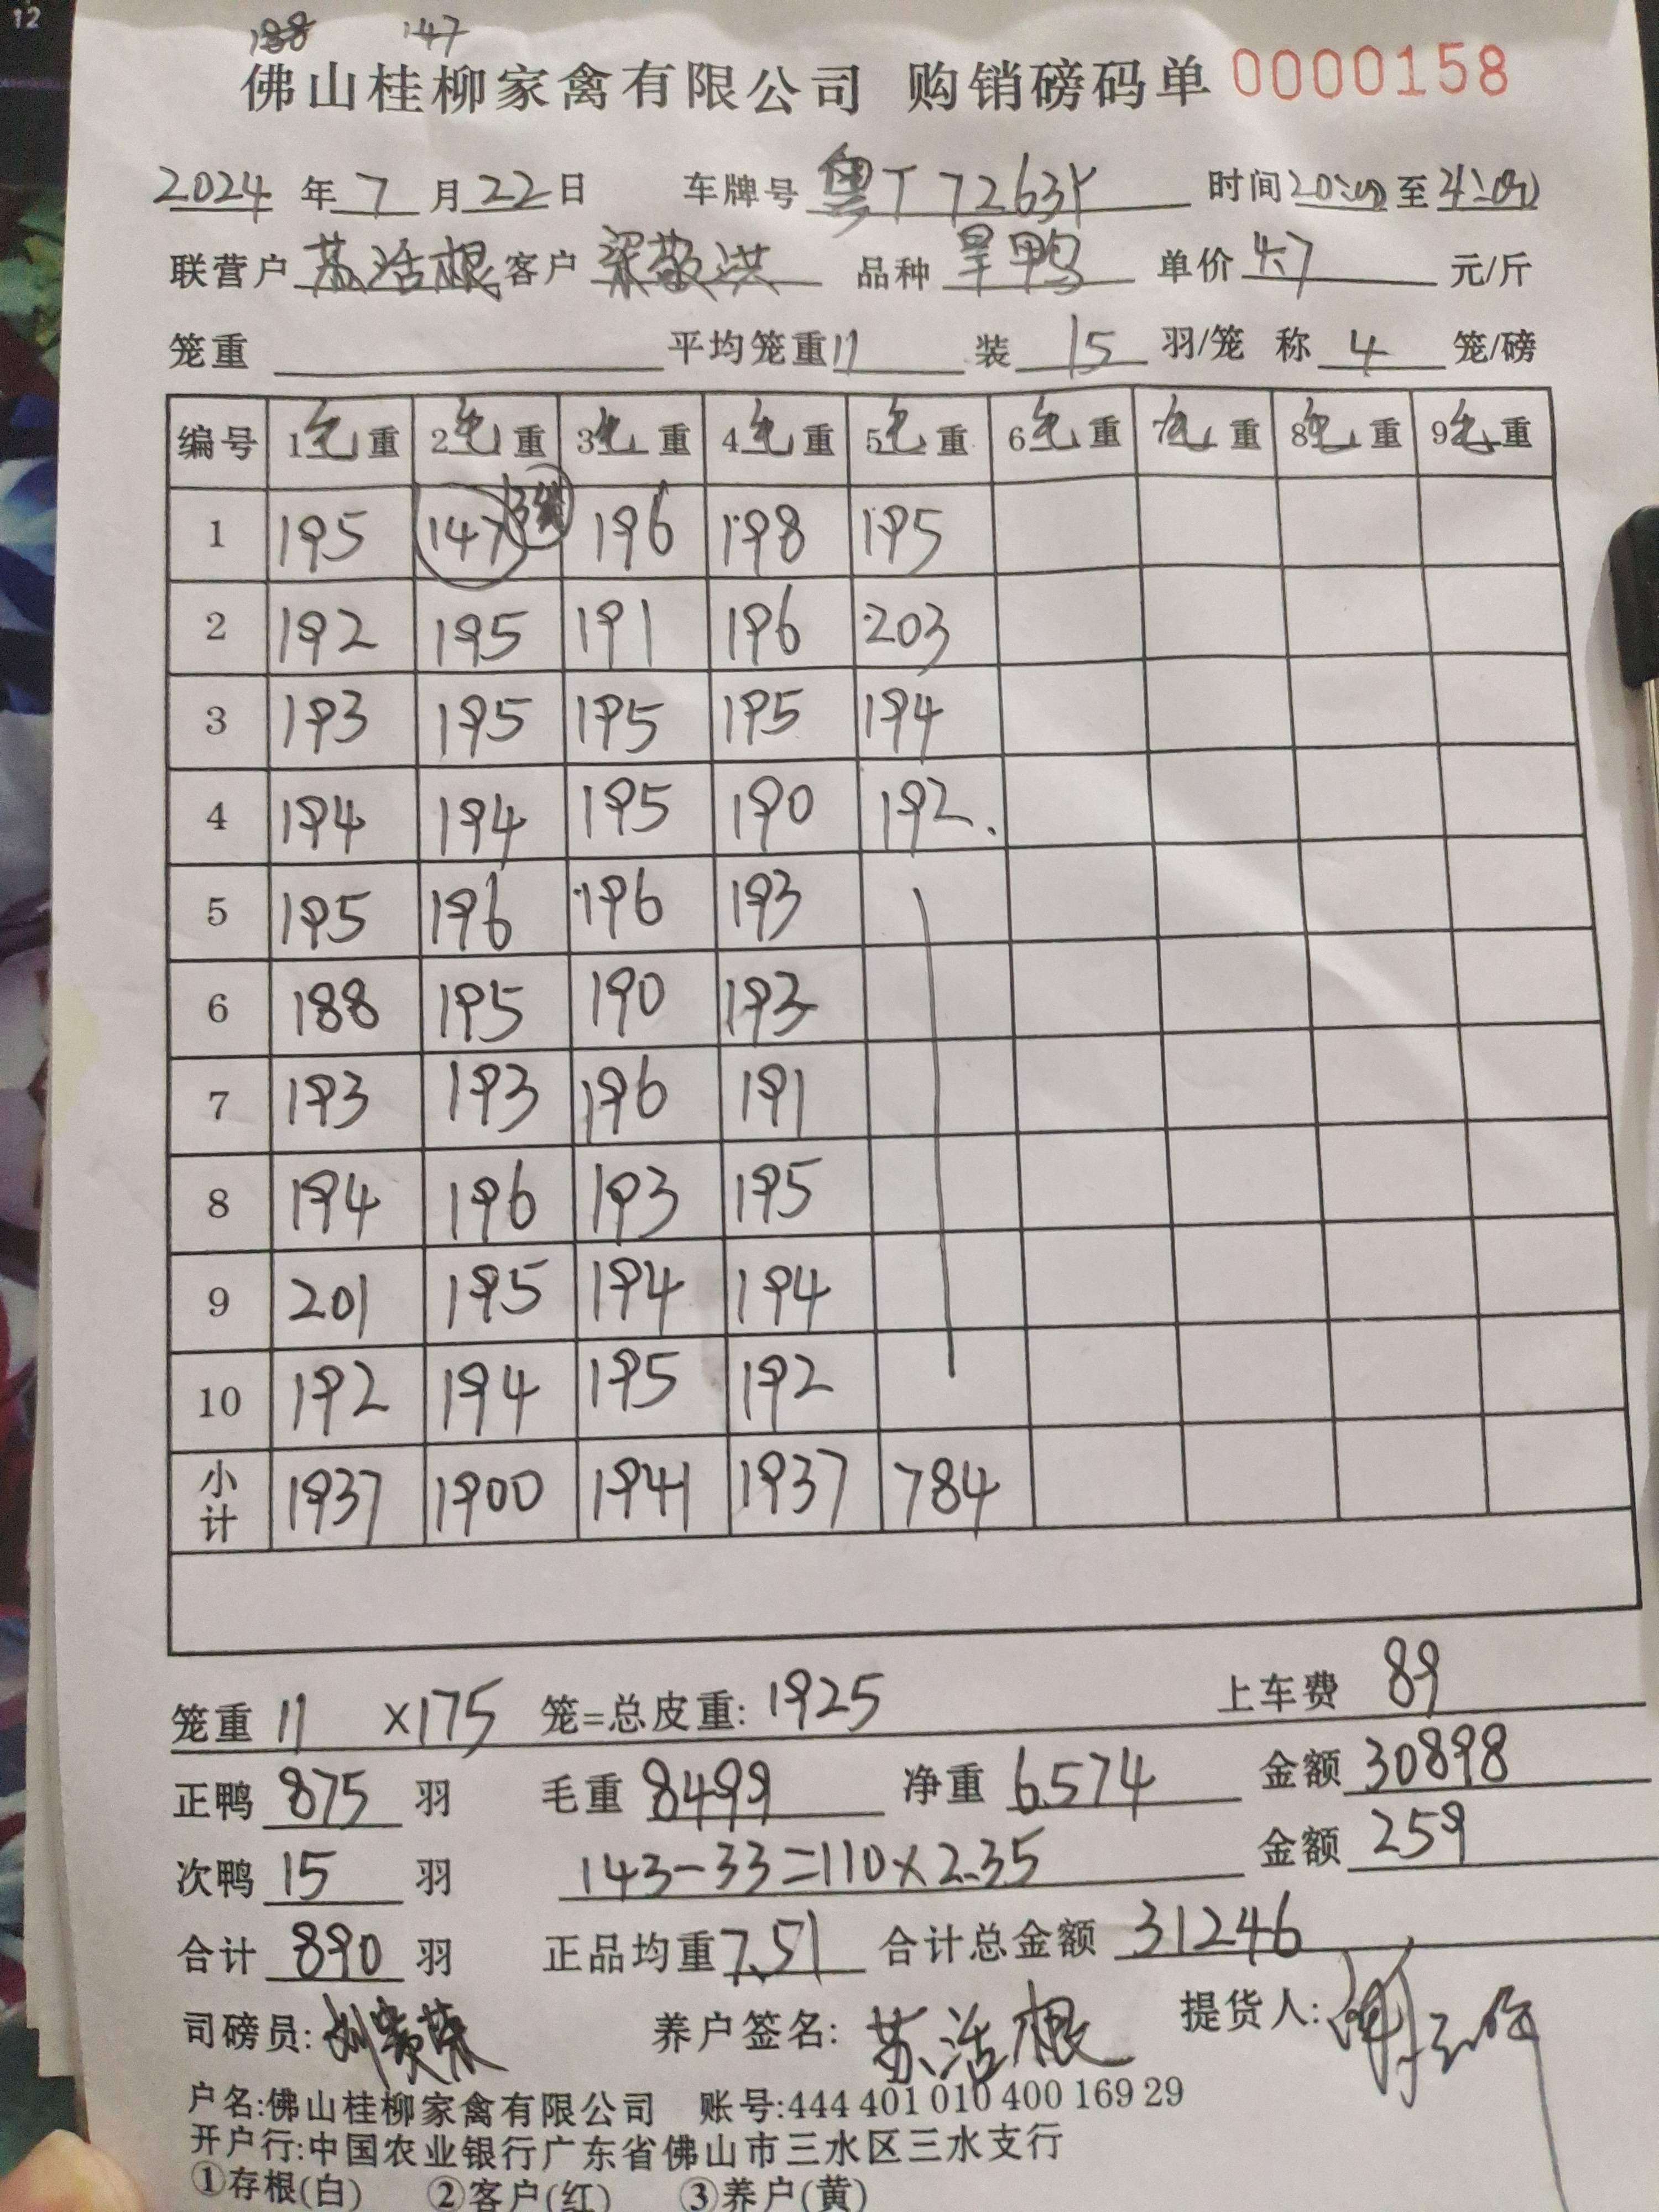 12
188 147
佛山桂柳家禽有限公司 购销磅码单 0000158
2024 年 7 月 22 日 车牌号 粤T7263Y 时间 20:00 至 4:00
联营户 苏活根 客户 梁敬洪 品种 旱鸭 单价 4.7 元/斤
笼重 平均笼重 11 装 15 羽/笼 称 4 笼/磅
编号 1毛重 2毛重 3毛重 4毛重 5毛重 6毛重 7毛重 8毛重 9毛重
1 195 147 196 198 195
2 192 195 191 196 203
3 193 195 195 195 194
4 194 194 195 190 192.
5 195 196 196 193
6 188 195 190 193
7 193 193 196 191
8 194 196 193 195
9 201 195 194 194
10 192 194 195 192
小计 1937 1900 1941 1937 784
笼重 11 ×175 笼=总皮重: 1925 上车费 89
正鸭 875 羽 毛重 8499 净重 6574 金额 30898
次鸭 15 羽 143-33=110×2.35 金额 259
合计 890 羽 正品均重 7.51 合计总金额 31246
司磅员: 养户签名: 苏活根 提货人:
户名:佛山桂柳家禽有限公司 账号:444 401 010 400 169 29
开户行:中国农业银行广东省佛山市三水区三水支行
①存根(白) ②客户(红) ③养户(黄)